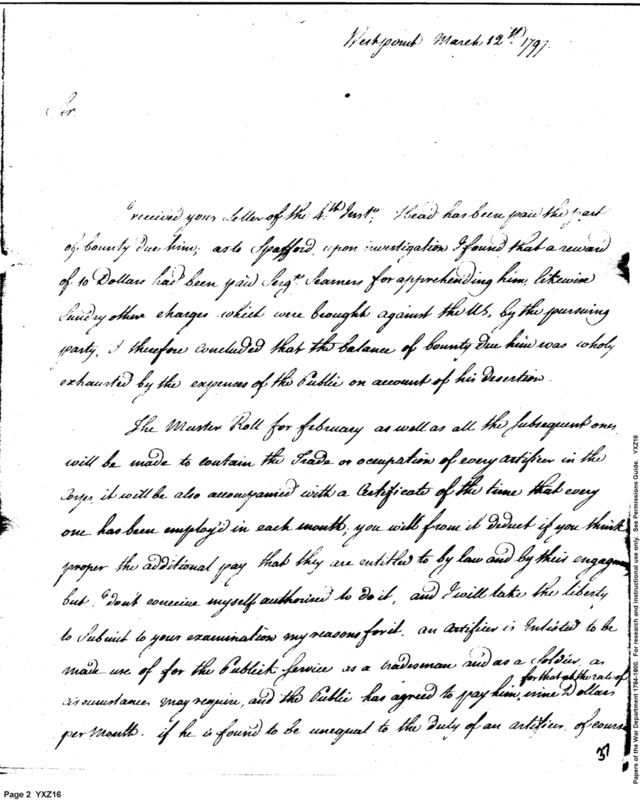 Westpoint March 12th. 1797.
Sir
I received your Letter of the 4th. Inst. Head has been paid the part
of bounty due him; as to Spafford, upon investigation I found that a reward
of 10 Dollars had been paid Sergt. Seamers for apprehending him, likewise
Sundry other charges which were brought against the US, by the pursuing
party, I therefore concluded that the balance of bounty due him was wholy
exhausted by the expenses of the Public on account of his desertion.
The Muster Roll for february as well as all the Subsequent ones
will be made to contain the Trade or occupation of every artificer in the
Corps, it will be also accompanied with a Certificate of the time that every
one has been employ'd in each month, you will from it deduct if you think
proper the additional pay that they are entitled to by law and by their engagem
but I don't conceive myself authorised to do it, and I will take the liberty
to Submit to your examination my reasons for it. an Artificer is Enlisted to be
made use of for the Publick Service as a tradesman and as a Soldier, as
circumstances may require, and the Public has agreed to pay him for that at the rate of nine Dollars
per Month. if he is found to be unequal to the duty of an artificer, of course
37
Page 2 YXZ16
Papers of the War Department 1784-1800. For research and instructional use only. See Permissions Guide. YXZ16